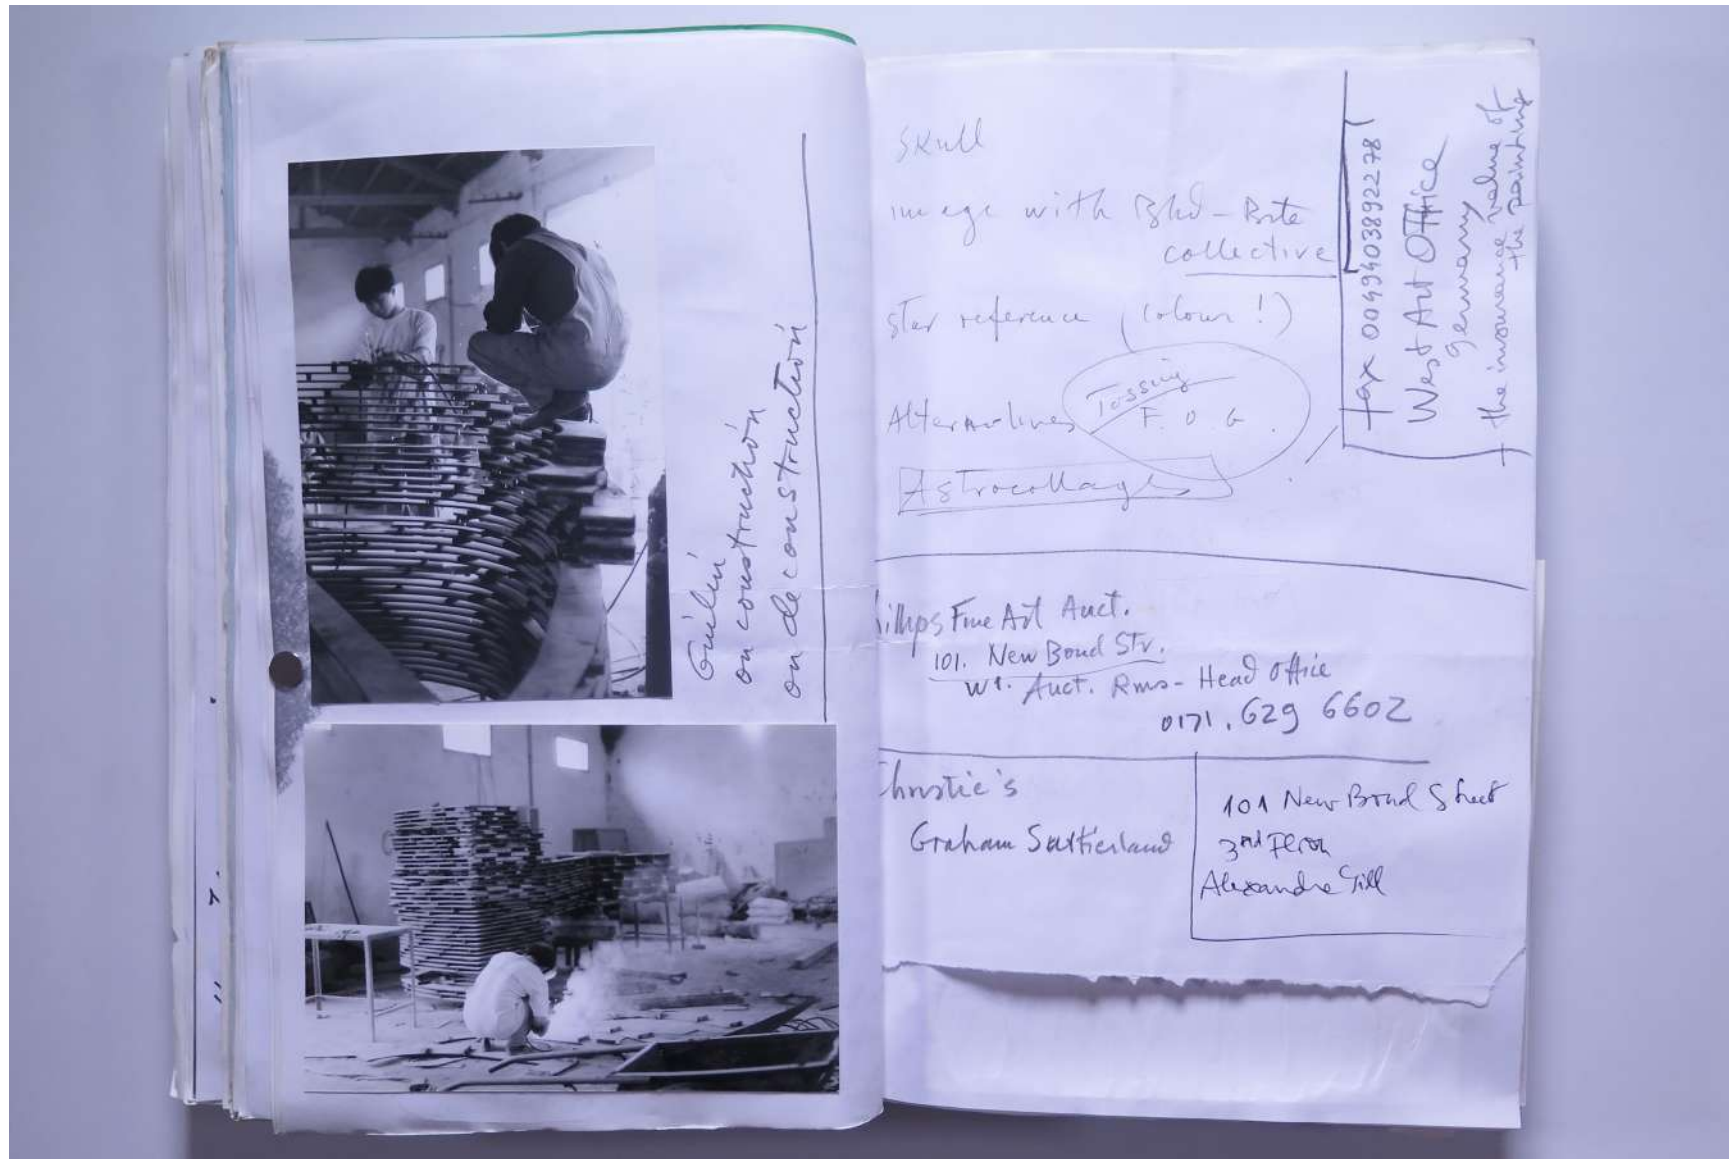 on construction
on deconstruction
Skull
image with
collective
ster reference (colour!)
Alternatives
Tossing
F. O. G.
Astrocollages
fax 0049403892278
West Art Office
germany
+ the insurance value of
the painting
illips Fine Art Auct.
101. New Bond Str.
W1. Auct. Rms - Head Office
0171. 629 6602
hristie's
Graham Sutherland
101 New Bond Street
3rd Floor
Alexandra Gill